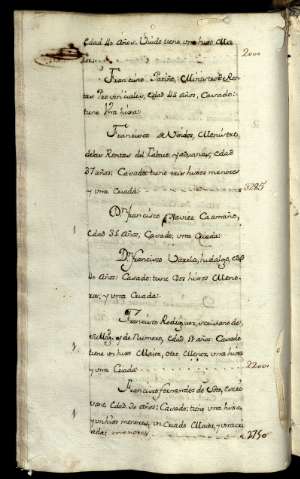 Edad 40 años. Viudo tiene una hija Ma
2200
Francisco Patiño, Ministro de Ren
tas Provinciales, Edad 44 años, Casado:
tiene Una hixa
Francisco de Ministro
delas Rentas del Tabaco y aduanas, edad
37 años: Casado: tiene seis hixos menores
y una Criada 3285
Dn. Francisco Xavier Caamaño,
Edad 35 años, Casado, una Criada
Dn. Francisco Varela, hidalgo, edad
años: Casado: tiene dos hixos Meno
res, y una Criada:
Francisco Rodriguez, escribano de
y de Numero, Edad años Casado
tiene un hixo Maior, otro Menor, una hixa
y una Criada 2200
Francisco fernandez de Soto, escri
vano Edad 30 años: Casado: tiene una hixa,
y un hixo menores, un Criado Maior, y una cria
da: menores 2750